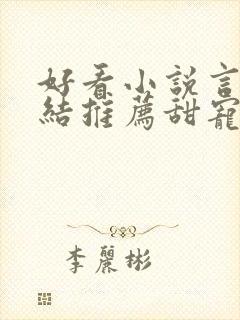 好看小說言
結推薦甜寵
李麗彬